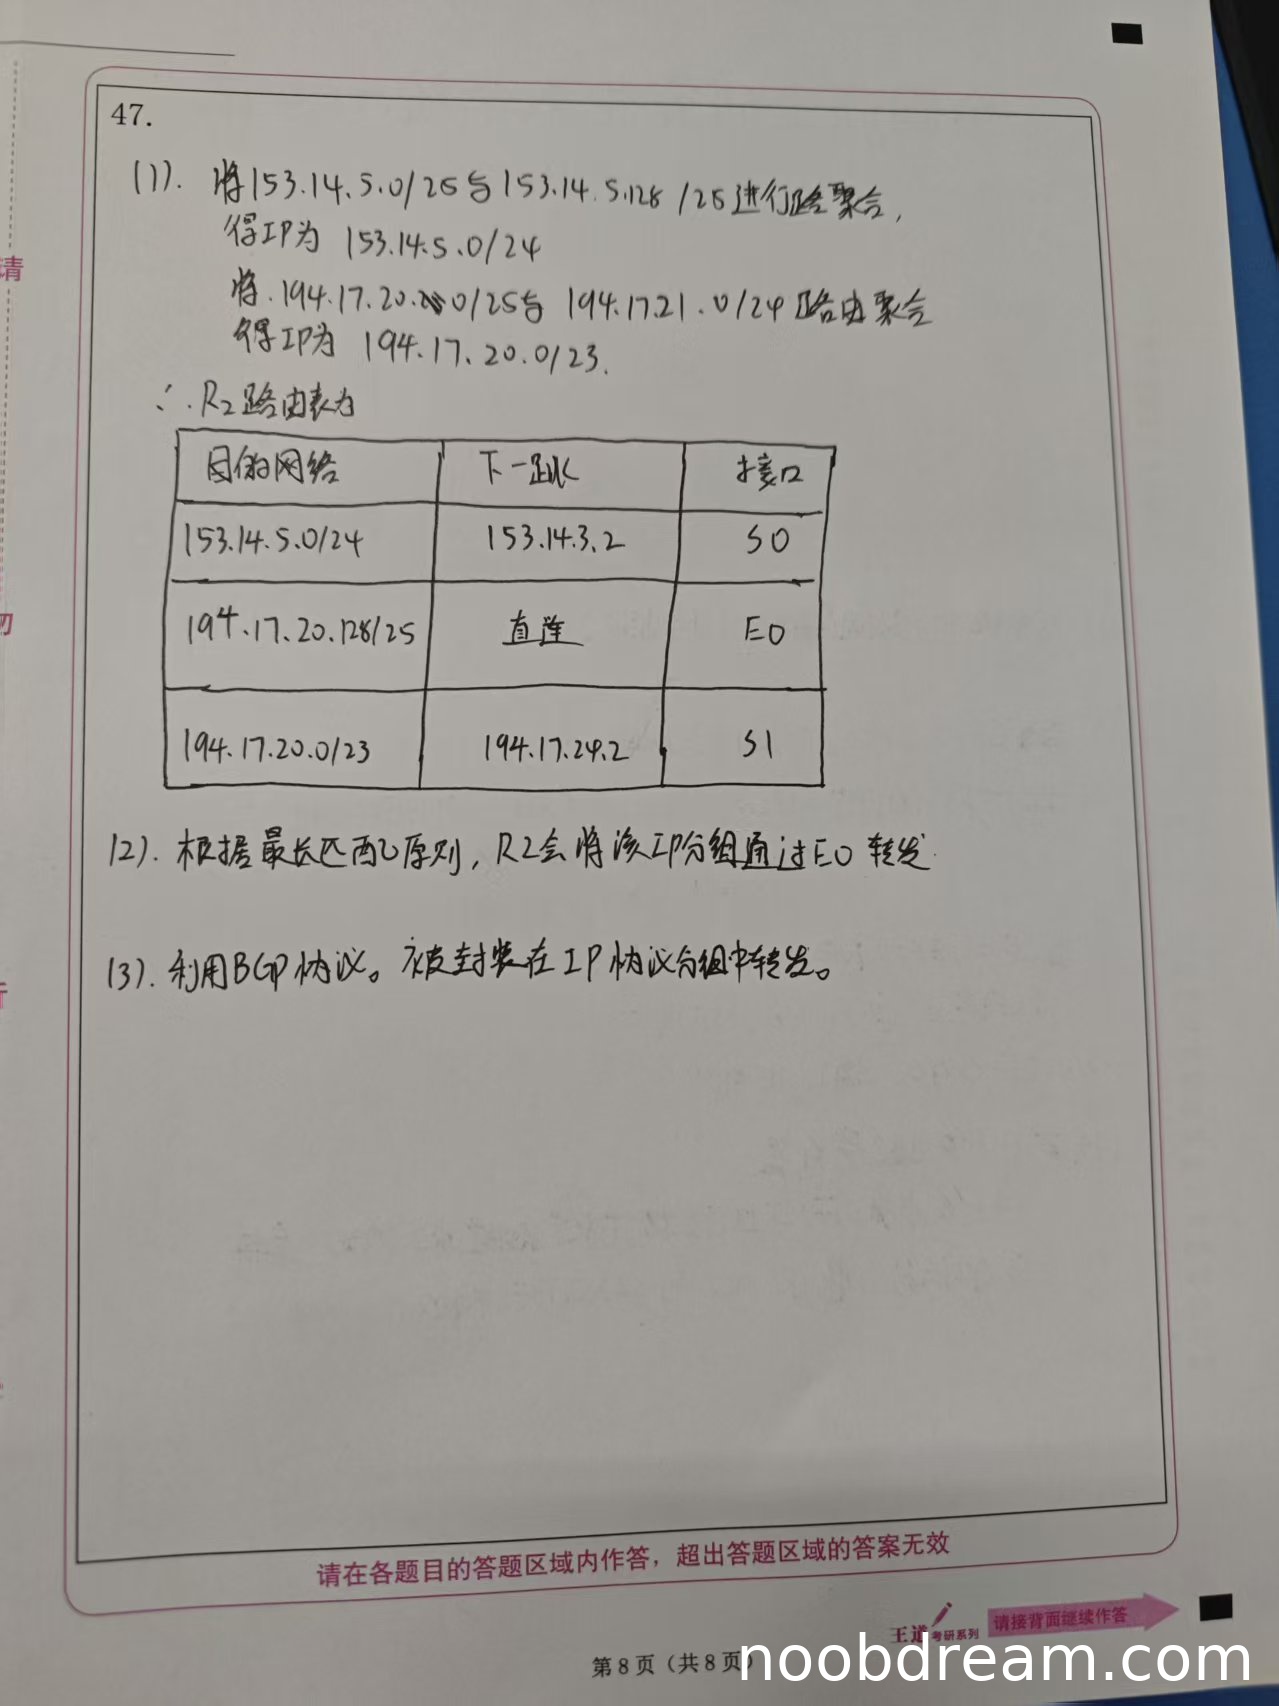 47.
(1). 将153.14.5.0/25与153.14.5.128/25进行路聚合,
得IP为 153.14.5.0/24
将.194.17.20.0/25与 194.17.21.0/24 路由聚合
得IP为 194.17.20.0/23.
∴.R2路由表为
目的网络 下一跳 接口
153.14.5.0/24 153.14.3.2 S0
194.17.20.128/25 直连 E0
194.17.20.0/23 194.17.24.2 S1
(2). 根据最长匹配原则, R2会将该IP分组通过E0 转发.
(3). 利用BGP协议。被封装在IP协议分组中转发。
请在各题目的答题区域内作答，超出答题区域的答案无效
王道考研系列 请接背面继续作答
第 8 页（共 8 页）
noobdream.com
请